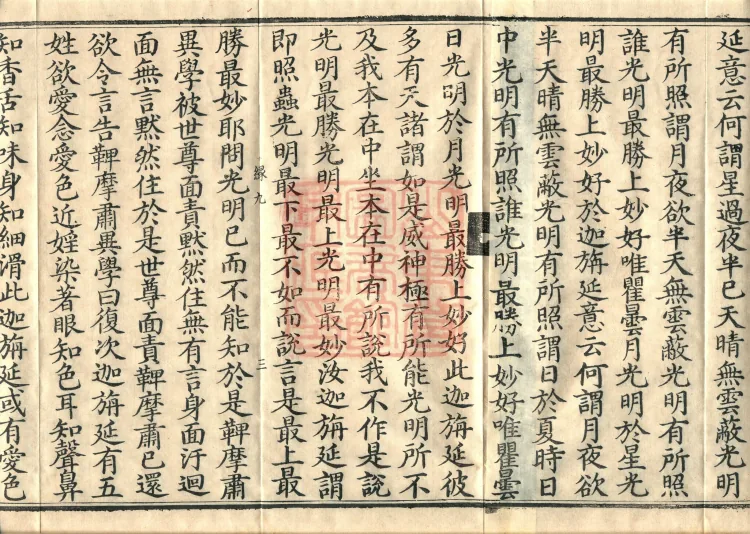 延意云何謂星過夜半已天晴無雲蔽光明
有所照謂月夜欲半天無雲蔽光明有所照
誰光明最勝上妙好唯瞿曇月光明於星光
明最勝上妙好於迦旃延意云何謂月夜欲
半天晴無雲蔽光明有所照謂日於夏時日
中光明有所照誰光明最勝上妙好唯瞿曇
日光明於月光明最勝上妙好此迦旃延彼
多有天諸謂如是威神極有所能光明所不
及我本在中坐本在中有所說我不作是說
光明最勝光明最上光明最妙汝迦旃延謂
即照蟲光明最下最不如而說言是最上最
緣九
三
勝最妙耶問光明已而不能知於是鞞摩肅
異學被世尊面責默然住無有言身面汙迴
面無言默然住於是世尊面責鞞摩肅已還
欲令言告鞞摩肅異學曰復次迦旃延有五
姓欲愛念愛色近婬染著眼知色耳知聲鼻
知香舌知味身知細滑此迦旃延或有愛色